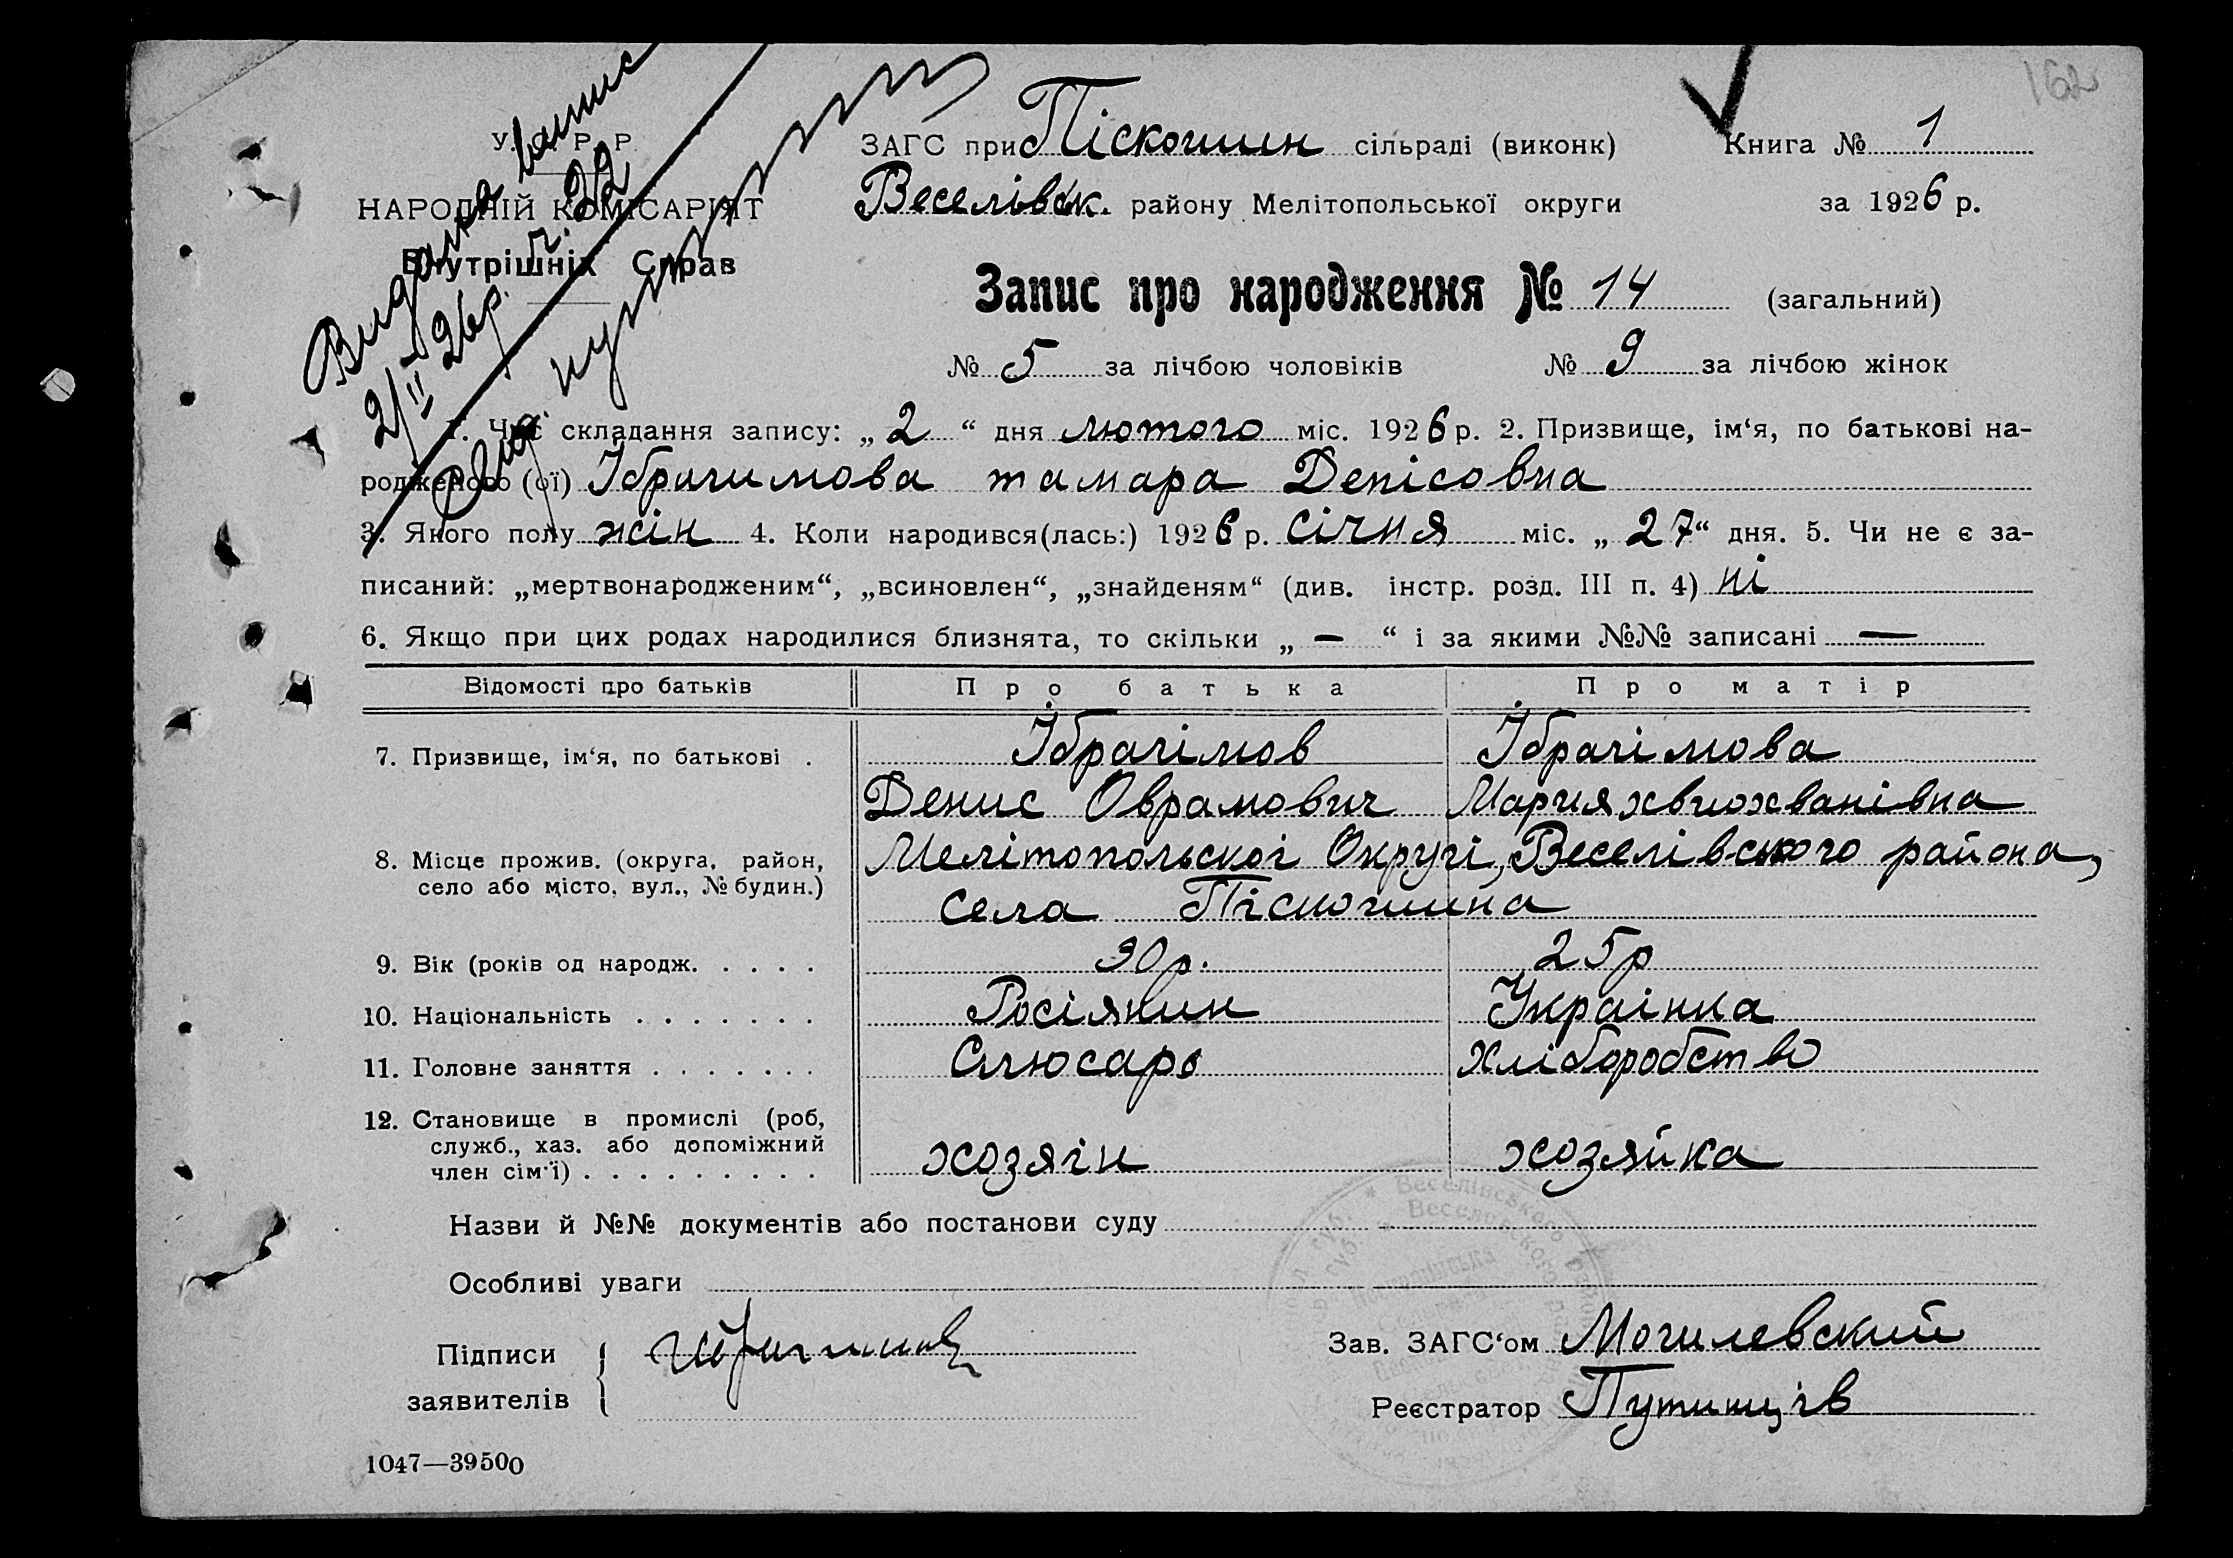 162
У. Р. Р.
ЗАГС при Піскошин сільраді (виконк)
Книга № 1
НАРОДНІЙ КОМІСАРІЯТ
Веселівськ. району Мелітопольської округи
за 1926 р.
Внутрішніх Справ
Видана випис
2/II 26р. ч. 22
Запис про народження № 14 (загальний)
№ 5 за лічбою чоловіків № 9 за лічбою жінок
1. Час складання запису: „2“ дня лютого міс. 1926 р. 2. Призвище, ім‘я, по батькові на-
родженого (ої) Ібрагимова тамара Денісовна
3. Якого полу жін 4. Коли народився(лась:) 1926 р. січня міс. „27“ дня. 5. Чи не є за-
писаний: „мертвонародженим“, „всиновлен“, „знайденям“ (див. інстр. розд. III п. 4) ні
6. Якщо при цих родах народилися близнята, то скільки „ — “ і за якими №№ записані —
Відомості про батьків Про батька Про матір
7. Призвище, ім‘я, по батькові . Ібрагімов Ібрагімова
Денис Оврамович Мария
8. Місце прожив. (округа, район, Мелітопольскої Округі, Веселівського района,
село або місто, вул., № будин.) села Піскошина
9. Вік (років од народж. . . . . 30 р. 25 р
10. Національність . . . . . . . Росіянин Украінка
11. Головне заняття . . . . . . . Слюсарь Хліборобство
12. Становище в промислі (роб,
служб., хаз. або допоміжний
член сім‘ї) . . . . . . . . . хозяін хозяйка
Назви й №№ документів або постанови суду
Особливі уваги
Підписи
заявителів
Зав. ЗАГС‘ом Могилевский
Реєстратор
1047—39500